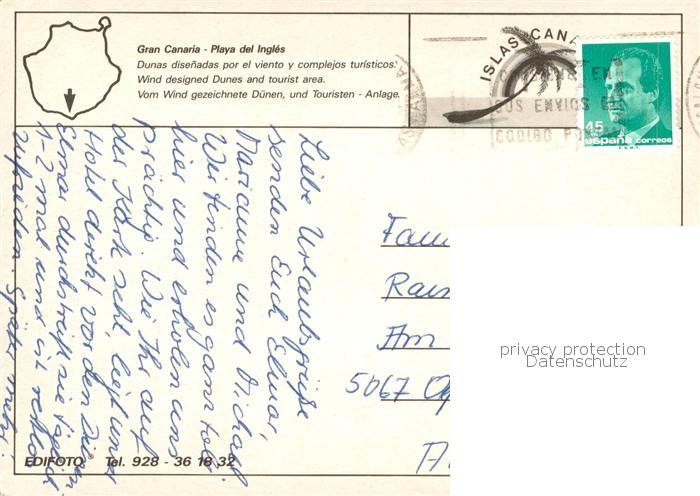 Gran Canaria - Playa del Inglés
Dunas diseñadas por el viento y complejos turísticos.
Wind designed Dunes and tourist area.
Vom Wind gezeichnete Dünen, und Touristen - Anlage.
ISLAS CANA
EN
SUS ENVIOS
CODIGO
45
españa correos
F.N.M.T.
Liebe Urlaubsgrüße
senden Euch Elmar,
Marianne und Michael
Wir finden es ganz toll
hier und erholen uns
prächtig. Wie Ihr auf
der Karte seht, liegt unser
Hotel direkt vor den Dünen.
Elmar durchstreift sie täglich
1-2 mal und ist restlos
zufrieden. Später mehr!
Fam
Rai
Am
5067
EDIFOTO Tel. 928 - 36 18 32
privacy protection
Datenschutz